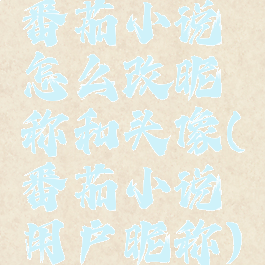 番茄小说
怎么改昵
称和头像(
番茄小说
用户昵称)